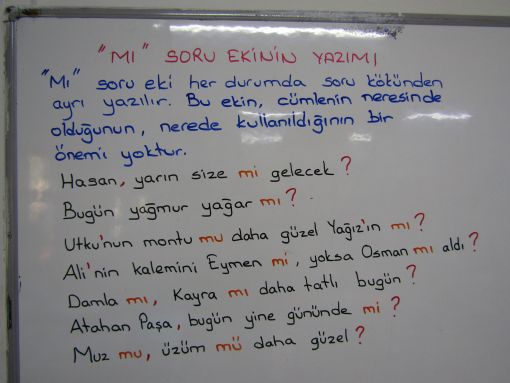 "MI" SORU EKİNİN YAZIMI
"Mı" soru eki her durumda soru kökünden
ayrı yazılır. Bu ekin, cümlenin neresinde
olduğunun, nerede kullanıldığının bir
önemi yoktur.
Hasan, yarın size mi gelecek?
Bugün yağmur yağar mı?
Utku'nun montu mu daha güzel Yağız'ın mı?
Ali'nin kalemini Eymen mi, yoksa Osman mı aldı?
Damla mı, Kayra mı daha tatlı bugün?
Atahan Paşa, bugün yine gününde mi?
Muz mu, üzüm mü daha güzel?